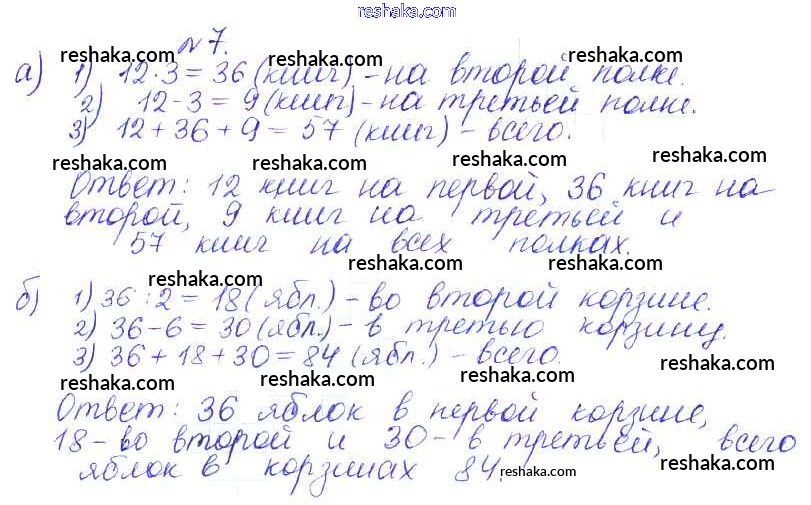 reshaka.com
№7.
а) 1) 12·3 = 36 (книг) - на второй полке.
2) 12-3 = 9 (книг) - на третьей полке.
3) 12+36+9 = 57 (книг) - всего.
Ответ: 12 книг на первой, 36 книг на
второй, 9 книг на третьей и
57 книг на всех полках.
б) 1) 36:2 = 18 (ябл.) - во второй корзине.
2) 36-6 = 30 (ябл.) - в третью корзину.
3) 36+18+30 = 84 (ябл.) - всего.
Ответ: 36 яблок в первой корзине,
18 - во второй и 30 - в третьей, всего
яблок в корзинах 84.
reshaka.com reshaka.com reshaka.com
reshaka.com reshaka.com reshaka.com
reshaka.com reshaka.com reshaka.com
reshaka.com reshaka.com reshaka.com
reshaka.com reshaka.com reshaka.com
reshaka.com reshaka.com reshaka.com